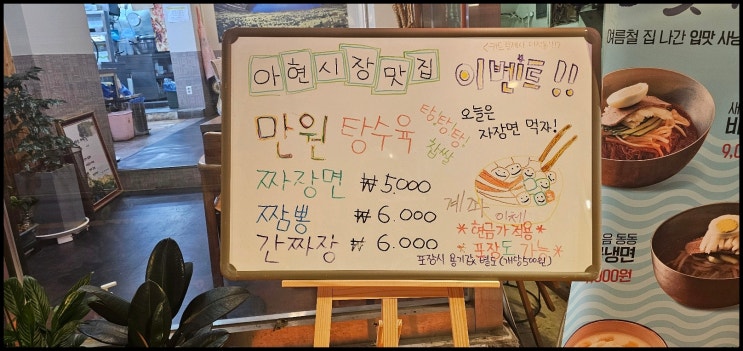 아현시장맛집 이벤트!!
만원 탕수육 탕탕탕!
찹쌀
오늘은
자장면 먹자!
짜장면 ₩5.000
짬뽕 ₩6.000
간짜장 ₩6.000
계좌 이체
*현금가 적용*
*포장도 가능*
포장시 용기값 별도(개당500원)
여름철 집 나간 입맛
새
9,0
음 동동
냉면
,000원